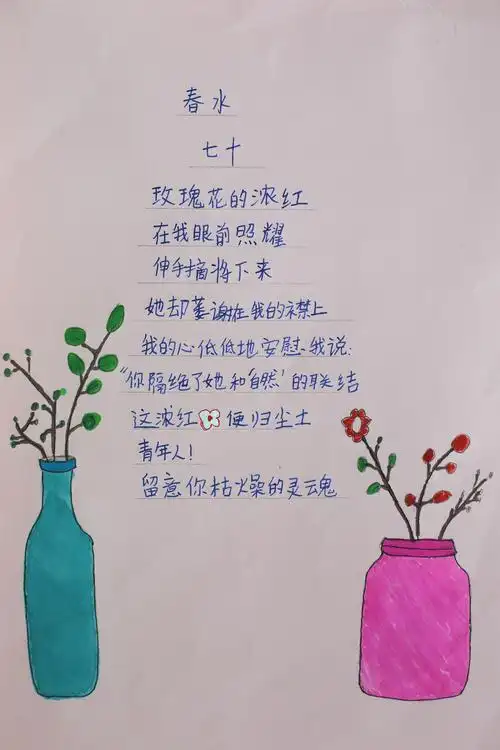 春水
七十
玫瑰花的浓红
在我眼前照耀
伸手摘将下来
她却萎谢在我的襟上
我的心低低地安慰我说:
“你隔绝了她和“自然”的联结
这浓红便归尘土
青年人!
留意你枯燥的灵魂